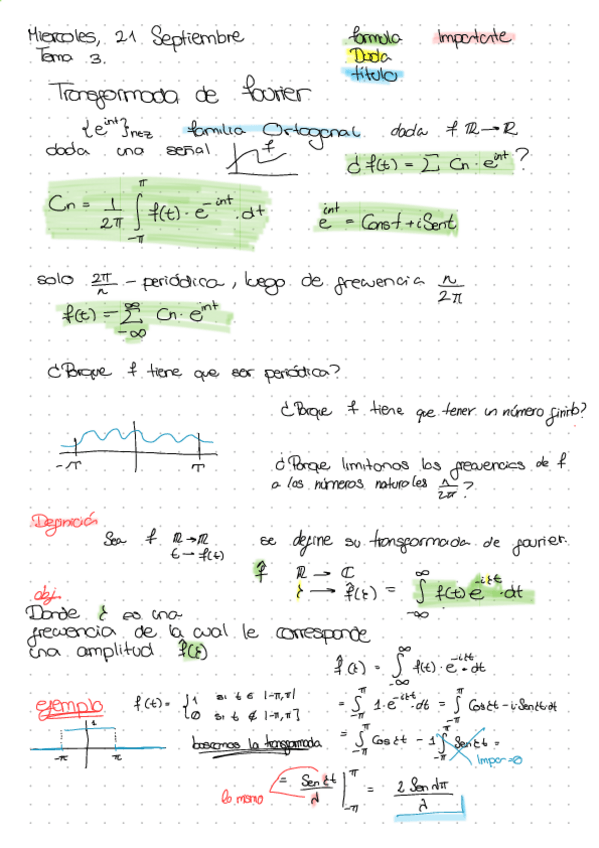 Miercoles, 21 Septiembre
formula
Importante.
Tema 3.
Duda
título
Transformada de fourier
{e^int}n∈Z familia Ortogonal dada f R→R
dada una señal f
¿ f(t) = Σ Cn · e^int ?
Cn = 1/2π ∫_-π^π f(t) · e^-int · dt
e^int = Cosnt + i Sent
solo 2π/n - periódica, luego de frecuencia n/2π
f(t) = Σ_-∞^∞ Cn · e^int
¿Porque f tiene que ser periódica?
¿Porque f tiene que tener un número finito?
-π π
¿Porque limitamos las frecuencias de f
a los números naturales n/2π?
Definición
Sea f R→R se define su transformada de fourier.
t→f(t)
f̂ R → C
ξ → f̂(ξ) = ∫_-∞^∞ f(t) e^-iξt · dt
obj.
Donde ξ es una
frecuencia de la cual le corresponde
una amplitud f̂(ξ)
f̂(ξ) = ∫_-∞^∞ f(t) · e^-iξt · dt
ejemplo f(t) = {1 si t ∈ |-π,π|
0 si t ∉ |-π,π]
= ∫_-π^π 1 · e^-iξt · dt = ∫_-π^π Cosξt - i Senξt dt
1
-π π
buscamos la transformada
= ∫_-π^π Cosξt - i ∫_-π^π Senξt =
Impar=0
lo mismo
= Senξt/λ |_-π^π = 2 Senλπ/λ